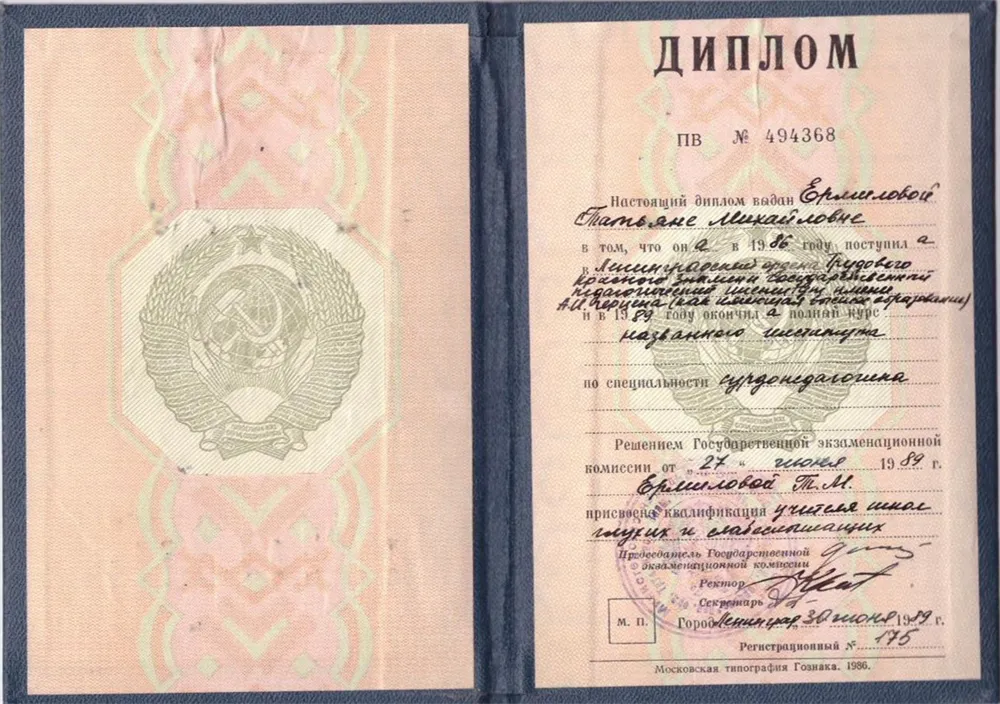 ДИПЛОМ
ПВ № 494368
Настоящий диплом выдан Ермиловой
Татьяне Михайловне
в том, что он а в 1986 году поступил а
в Ленинградский ордена Трудового
Красного Знамени государственный
педагогический институт имени
А.И. Герцена (как имеющая высшее образование)
и в 1989 году окончил а полный курс
названного института
по специальности сурдопедагогика
Решением Государственной экзаменационной
комиссии от „ 27 “ июня 1989 г.
Ермиловой Т.М.
присвоена квалификация учителя школ
глухих и слабослышащих
Председатель Государственной
экзаменационной комиссии
Ректор
Секретарь
М. П.
Город Ленинград 30 июня 1989 г.
Регистрационный № 175
Московская типография Гознака. 1986.